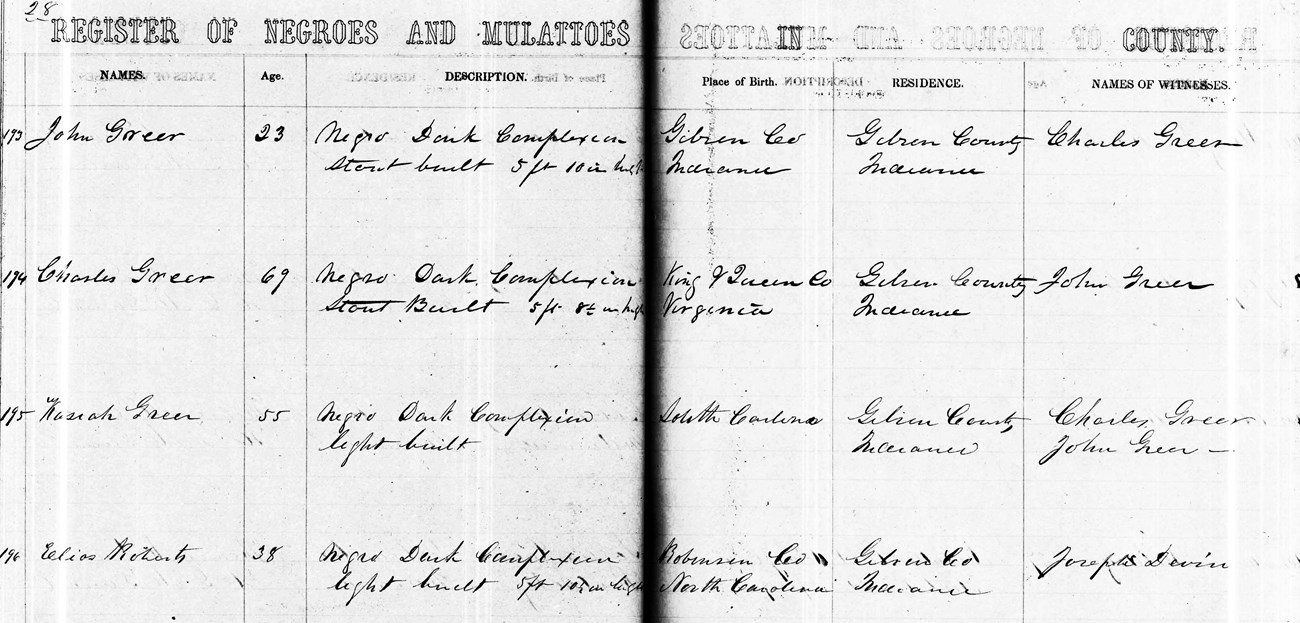 28
REGISTER OF NEGROES AND MULATTOES IN COUNTY.
NAMES. Age. DESCRIPTION. Place of Birth. RESIDENCE. NAMES OF WITNESSES.
193 John Greer 23 Negro Dark Complexion Gibson Co Gibson County Charles Greer
Stout built 5 ft 10 in high Indiana Indiana
194 Charles Greer 69 Negro Dark Complexion King & Queen Co Gibson County John Greer
Stout Built 5 ft 8½ in high Virginia Indiana
195 Keziah Greer 55 Negro Dark Complexion South Carolina Gibson County Charles Greer
light built Indiana John Greer
196 Elias Roberts 38 Negro Dark Complexion Robinson Co Gibson Co Joseph Devin
light built 5 ft 10½ in high North Carolina Indiana